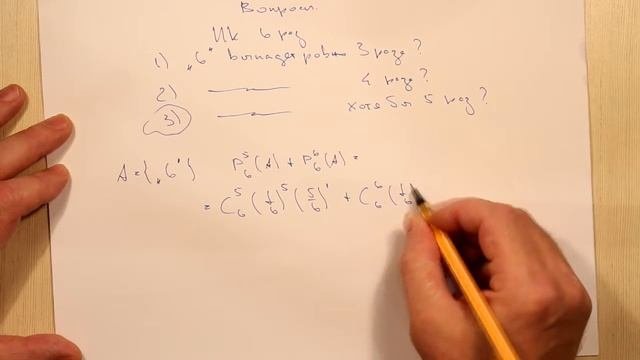 Вопросы.
ИК 6 раз
1) „6“ выпадет ровно 3 раза?
2) —— 4 раза?
3) —— хотя бы 5 раз?
A = {„6“} P₆⁵(A) + P₆⁶(A) =
= C₆⁵ (1/6)⁵ (5/6)¹ + C₆⁶ (1/6